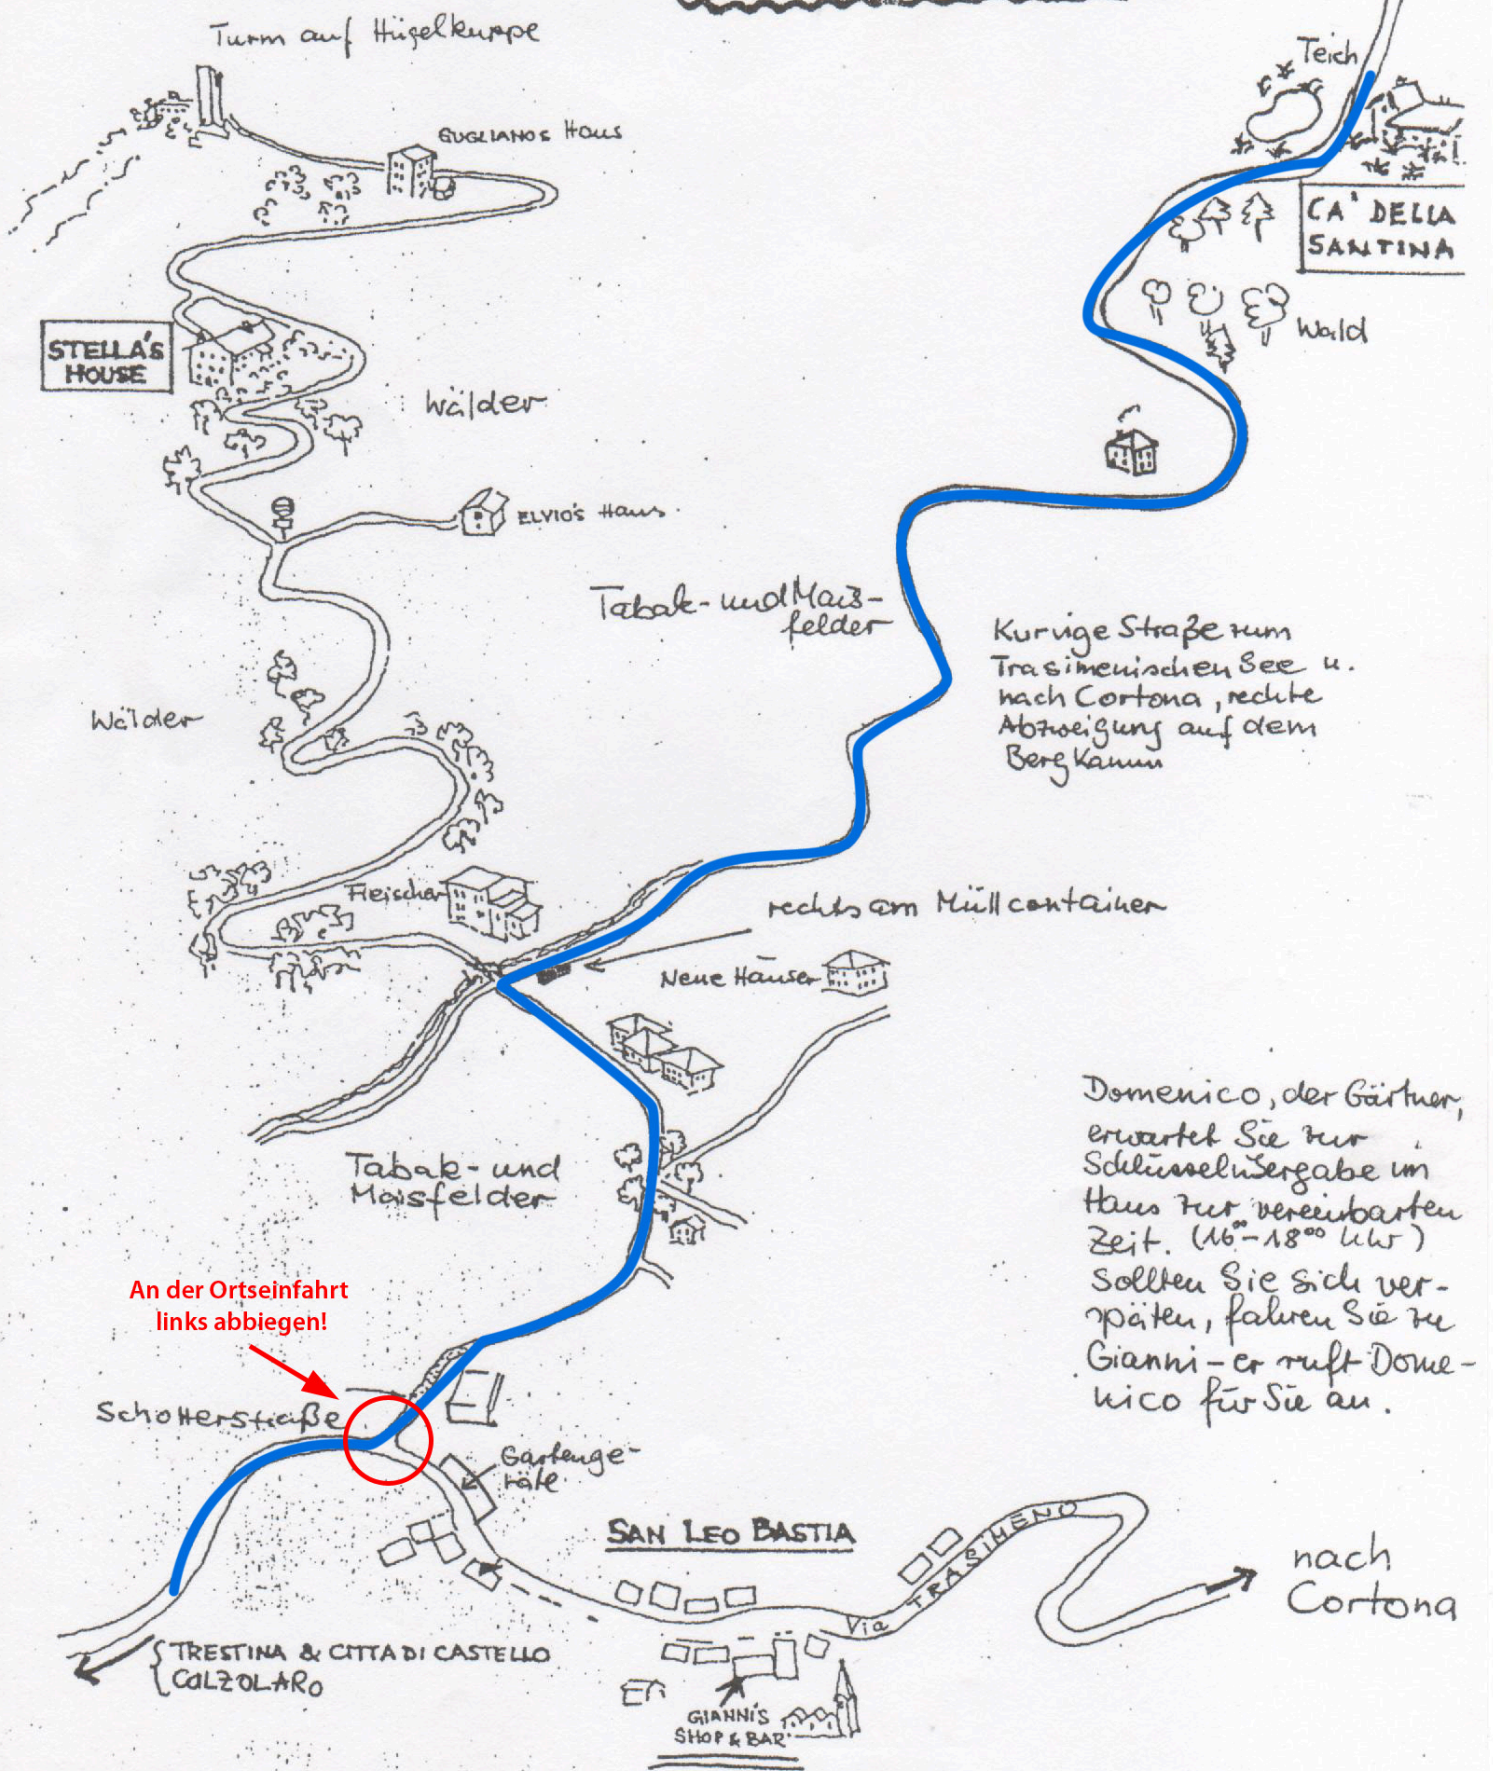 Turm auf Hügelkuppe
Teich
GUGLIANOS Haus
CA' DELLA
SANTINA
STELLA'S
HOUSE
Wald
Wälder
ELVIO'S Haus.
Tabak- und Mais-
felder
Kurvige Straße zum
Trasimenischen See u.
nach Cortona, rechte
Abzweigung auf dem
Bergkamm
Wälder
Fleischer
rechts am Müllcontainer
Neue Häuser
Domenico, der Gärtner,
erwartet Sie zur
Schlüsselübergabe im
Haus zur vereinbarten
Zeit. (16⁰⁰-18⁰⁰ Uhr)
Sollten Sie sich ver-
späten, fahren Sie zu
Gianni - er ruft Dome-
nico für Sie an.
Tabak- und
Maisfelder
An der Ortseinfahrt
links abbiegen!
Schotterstraße
Gartenge-
räte
SAN LEO BASTIA
Via TRASIMENO
nach
Cortona
TRESTINA & CITTA DI CASTELLO
CALZOLARO
GIANNI'S
SHOP & BAR